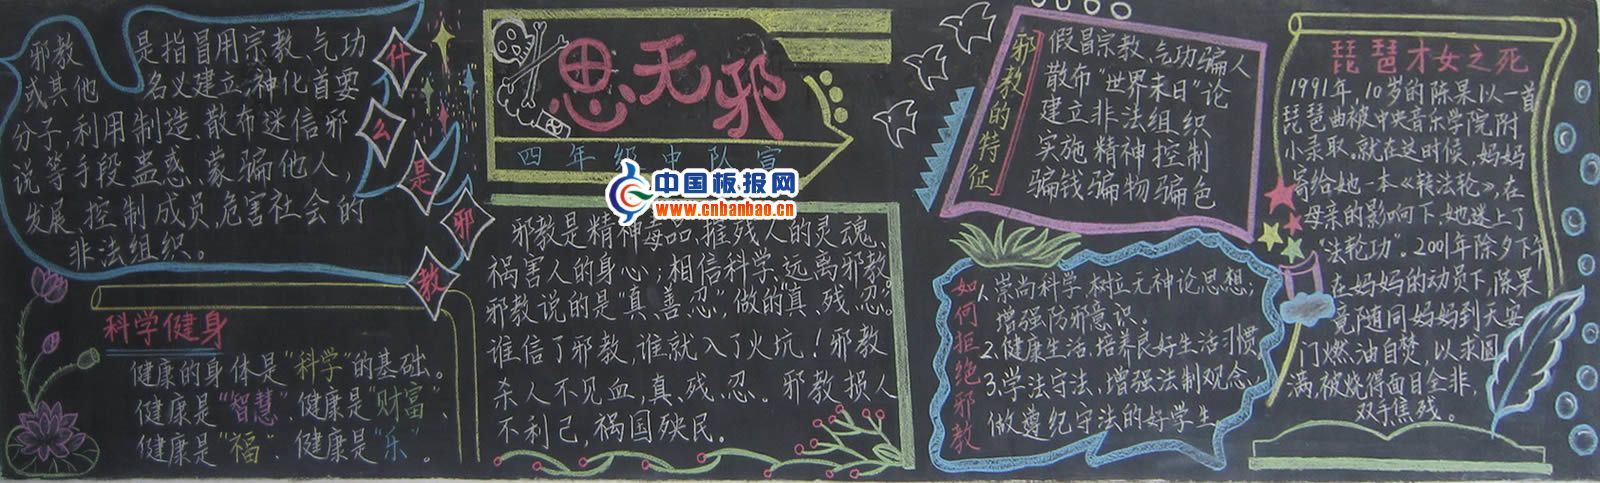 邪教 是指冒用宗教、气功
或其他 名义建立,神化首要
分子,利用制造、散布迷信邪
说等手段蛊惑、蒙骗他人,
发展、控制成员,危害社会的
非法组织。
什
么
是
邪
教
科学健身
健康的身体是“科学”的基础。
健康是“智慧”、健康是“财富”、
健康是“福”、健康是“乐”。
思无邪
四年级中队宣
中国板报网
www.cnbanbao.cn
邪教是精神毒品,摧残人的灵魂、
祸害人的身心;相信科学,远离邪教。
邪教说的是“真、善、忍”,做的“真、残、忍”。
谁信了邪教,谁就入了火坑！邪教
杀人不见血,真、残、忍。邪教损人
不利己,祸国殃民。
邪教的特征
假冒宗教、气功骗人
散布“世界末日”论
建立非法组织
实施精神控制
骗钱骗物骗色
如何拒绝邪教
1、崇尚科学,树立无神论思想;
增强防邪意识。
2、健康生活,培养良好生活习惯,
3、学法守法,增强法制观念、
做遵纪守法的好学生
琵琶才女之死
1991年,10岁的陈果以一首
琵琶曲被中央音乐学院附
小录取。就在这时候,妈妈
寄给她一本《转法轮》,在
母亲的影响下,她迷上了
“法轮功”。2001年除夕下午
在妈妈的动员下,陈果
竟随同妈妈到天安
门燃油自焚,以求圆
满,被烧得面目全非,
双手焦残。